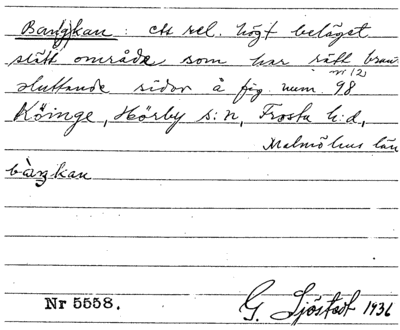 Bang(k)kan: ett rel. högt beläget
slätt område som har rätt bran-
nr 12
sluttande sidor å fäg. num. 98
Köinge, Hörby s:n, Frosta h:d,
Malmöhus län
bàŋkan
Nr 5558. G. Sjöstedt 1936